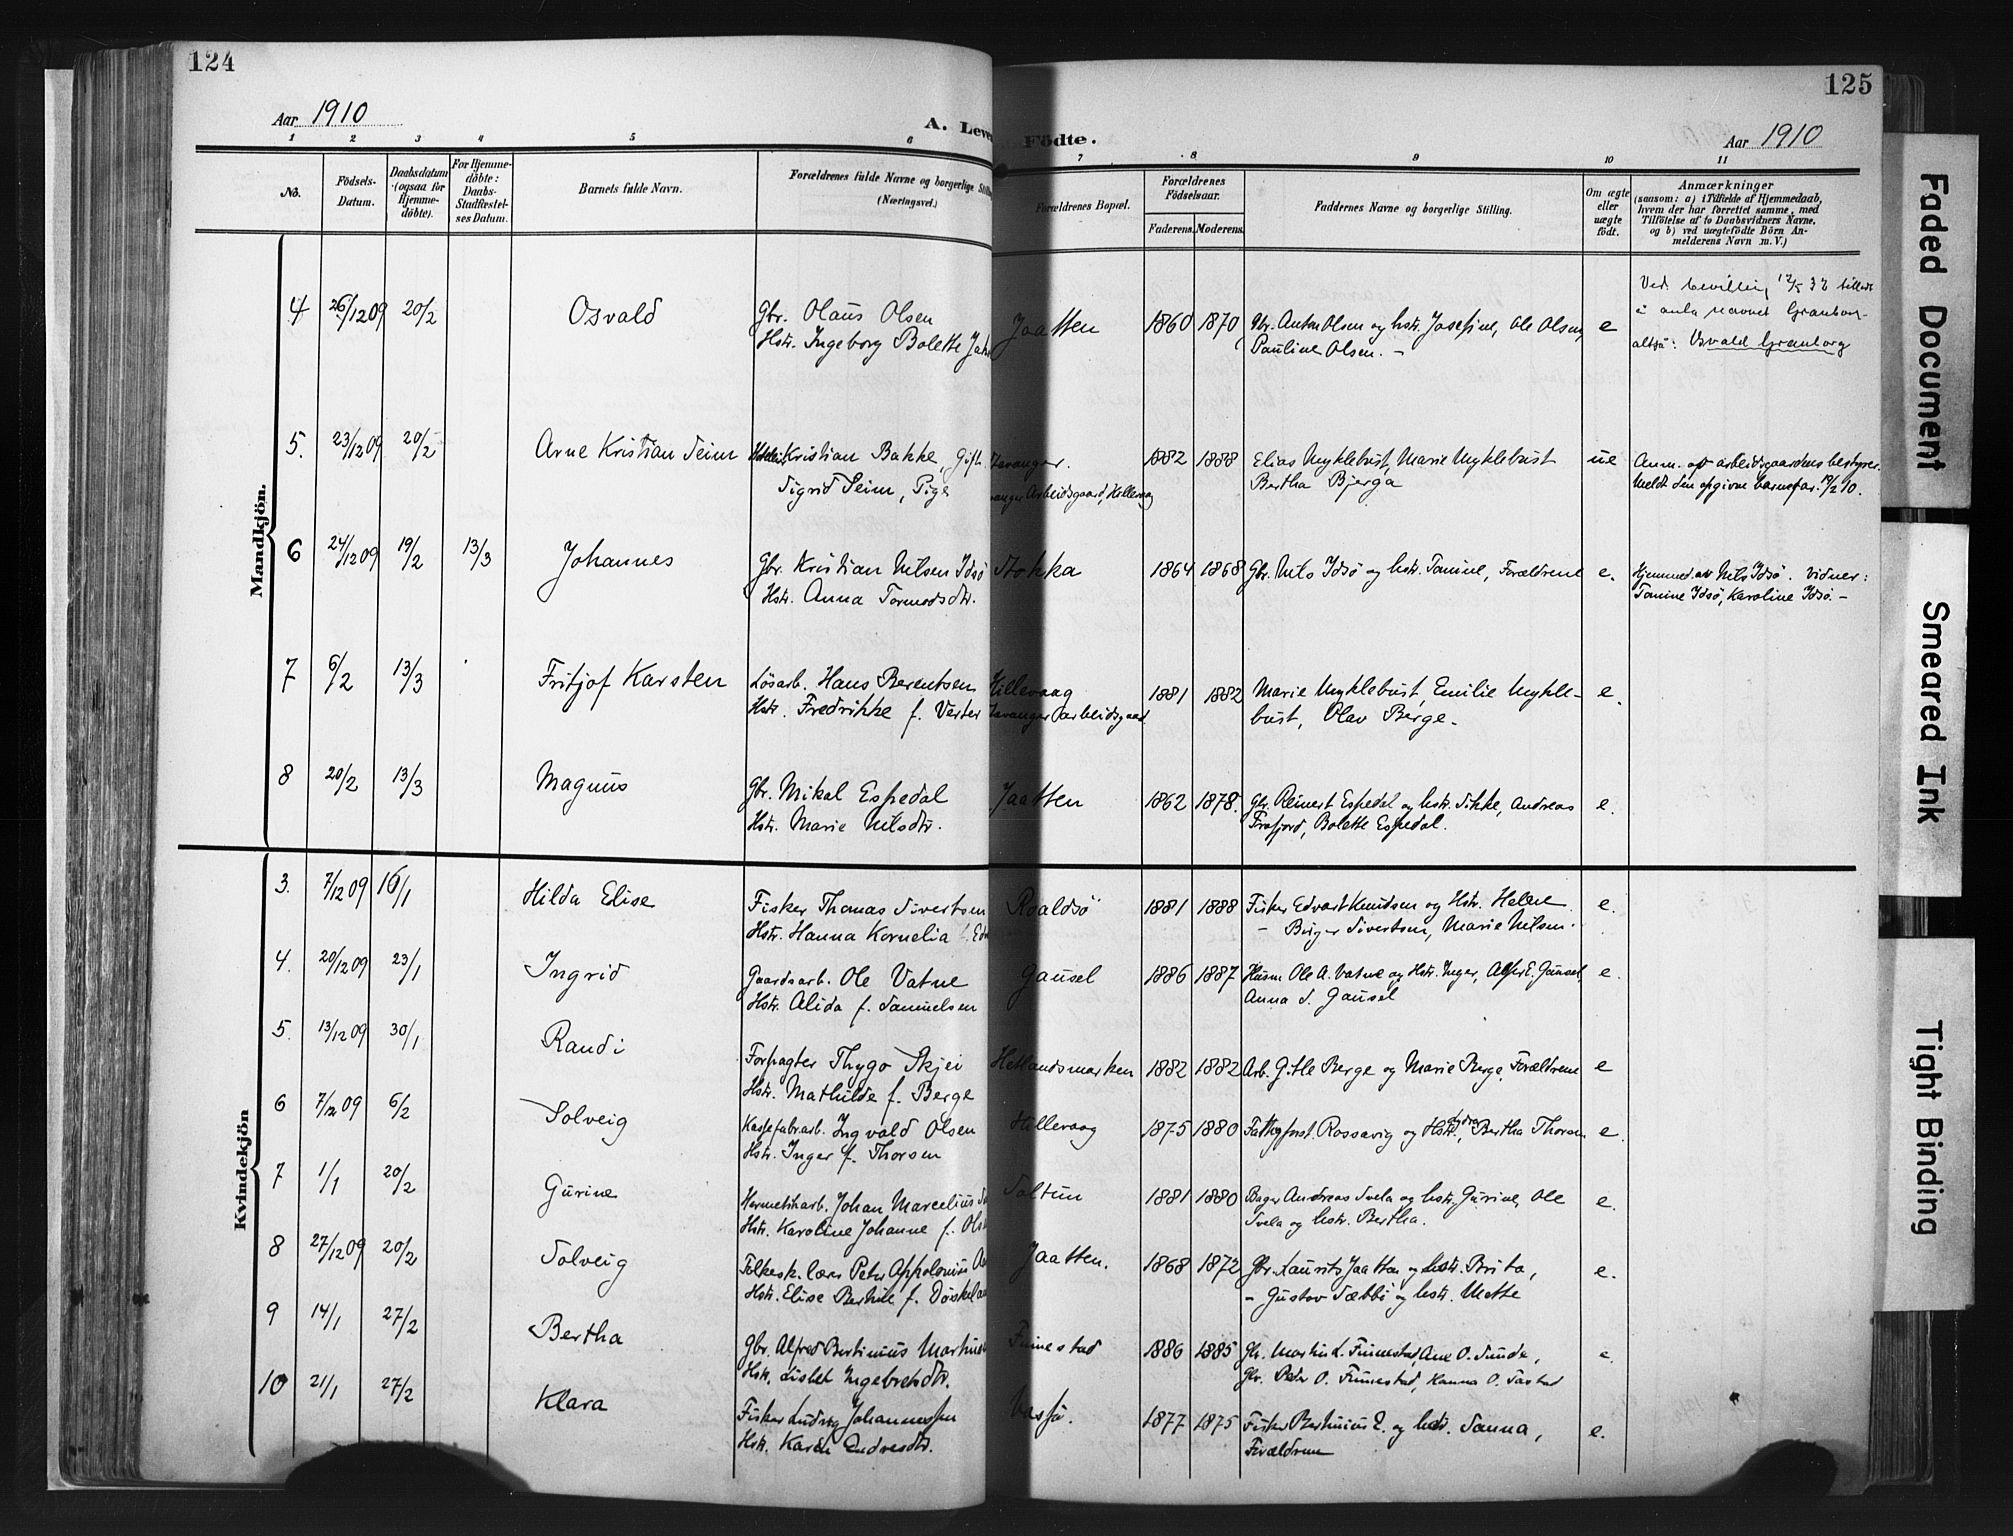 124
Aar 1910
A. Leve
1 2 3 4 5 6
No.
Födsels-Datum.
Daabsdatum (ogsaa for Hjemme-döbte).
For Hjemme-döbte: Daabs-Stadfæstel-ses Datum.
Barnets fulde Navn.
Forældrenes fulde Navne og borgerlige Stilling (Næringsvei.)
Mandkjön.
4 26/12 09 20/2 Osvald Gbr. Olaus Olsen
Hstr. Ingeborg Bolette
5. 23/12 09 20/2 Arne Kristian Seim Kristian Bakke, Gift.
Sigrid Seim, Pige
6 24/12 09 19/2 13/3 Johannes Gbr. Kristian Nilsen Idsö
Hstr. Anna Tormodsdtr.
7 6/2 13/3 Fritjof Karsten Lösarb. Hans Berentsen
Hstr. Fredrikke f. Verter
8 20/2 13/3 Magnus Gbr. Mikal Espedal
Hstr. Marie Nilsdtr.
Kvindekjön
3. 7/12 09 16/1 Hilda Elise Fisker Thomas Sivertsen
Hstr. Hanna Kornelia f.
4. 20/12 09 23/1 Ingrid Gaardsarb. Ole Vatne
Hstr. Alida f. Samuelsen
5. 13/12 09 30/1 Randi Forpagter Thygo Skjei
Hstr. Mathilde f. Berge
6 7/12 09 6/2 Solveig Kassefabr.arb. Ingvald Olsen
Hstr. Inger f. Thorsen
7 1/1 20/2 Gurine Hermetikarb. Johan Marcelius
Hstr. Karoline Johanne f.
8 27/12 09 20/2 Solveig Folkesk. lærer Peter Appolonius
Hstr. Elise Berthine f.
9 14/1 27/2 Bertha Gbr. Alfred Bertinius
Hstr. Lisbet Ingebretsdtr.
10 21/1 27/2 Klara Fisker Ludvig Johannessen
Hstr. Karen Endresdtr.
125
Födte.
Aar 1910
7 8 9 10 11
Forældrenes Bopæl.
Forældrenes Födselsaar.
Faderens. Moderens.
Faddernes Navne og borgerlige Stilling.
Om ægte eller uægte födt.
Anmærkninger
(saasom: a) i Tilfælde af Hjemmedaab,
hvem der har forrettet samme, med
Tilföielse af to Daabsvidners Navne,
og b) ved uægtefödte Börn An-
melderens Navn m. V.)
Jaatten 1860 1870 Gbr. Anton Olsen og hstr. Josefine, Ole Olsen, e Ved bevilling 12/5 32 tillatt
Pauline Olsen. – å anta navnet Granborg
altså: Osvald Granborg
1882 1888 Elias Myklebust, Marie Myklebust ue Anm. af arbeidsgaardens bestyrer.
Arbeidsgaard, Hillevaag Bertha Bjerga Meldt den opgivne barnefar. 19/2 10.
Stokka 1864 1868 Gbr. Nils Idsö og hstr. Tomine, Forældrene e. Hjemmed. av Nils Idsö. Vidner:
Tomine Idsö, Karoline Idsö. –
Hillevaag 1881 1882 Marie Myklebust, Emilie Mykle- e.
arbeidsgaard bust, Olav Berge. –
Jaatten 1862 1878. Gbr. Reinert Espedal og hstr. Sikke, Andreas e.
Frafjord, Bolette Espedal.
Roaldsö 1881 1888 Fisker Edvart Knudsen og Hstr. Helene e.
– Birger Sivertsen, Marie Nilsen.
Gausel 1886 1887 Husm. Ole A. Vatne og Hstr. Inger, Alfr. E. Gausel, e.
Anna S. Gausel
Hetlandsmarken 1882 1882 Arb. Gitle Berge og Marie Berge, Forældrene e
Hillevaag 1875 1880 Rossavig og Hstr., Bertha Thorsen e.
Saltun 1881 1880 Bager Andreas Svela og hstr. Gurine, Ole e.
Svela og hstr. Bertha.
Jaatten. 1868 1872 Gbr. Laurits Jaatten og hstr. Brita, e.
– Gustav Sæbbö og hstr. Mette
Finnestad 1886 1885 Gbr. Martin L. Finnestad, Ane O. Sunde, e.
Gbr. Peder O. Finnestad, Hanna O. Tastad
Vassö. 1877 1875 Fisker Berthinius E. og hstr. Sanna, e.
Forældrene
Faded Document
Smeared Ink
Tight Binding